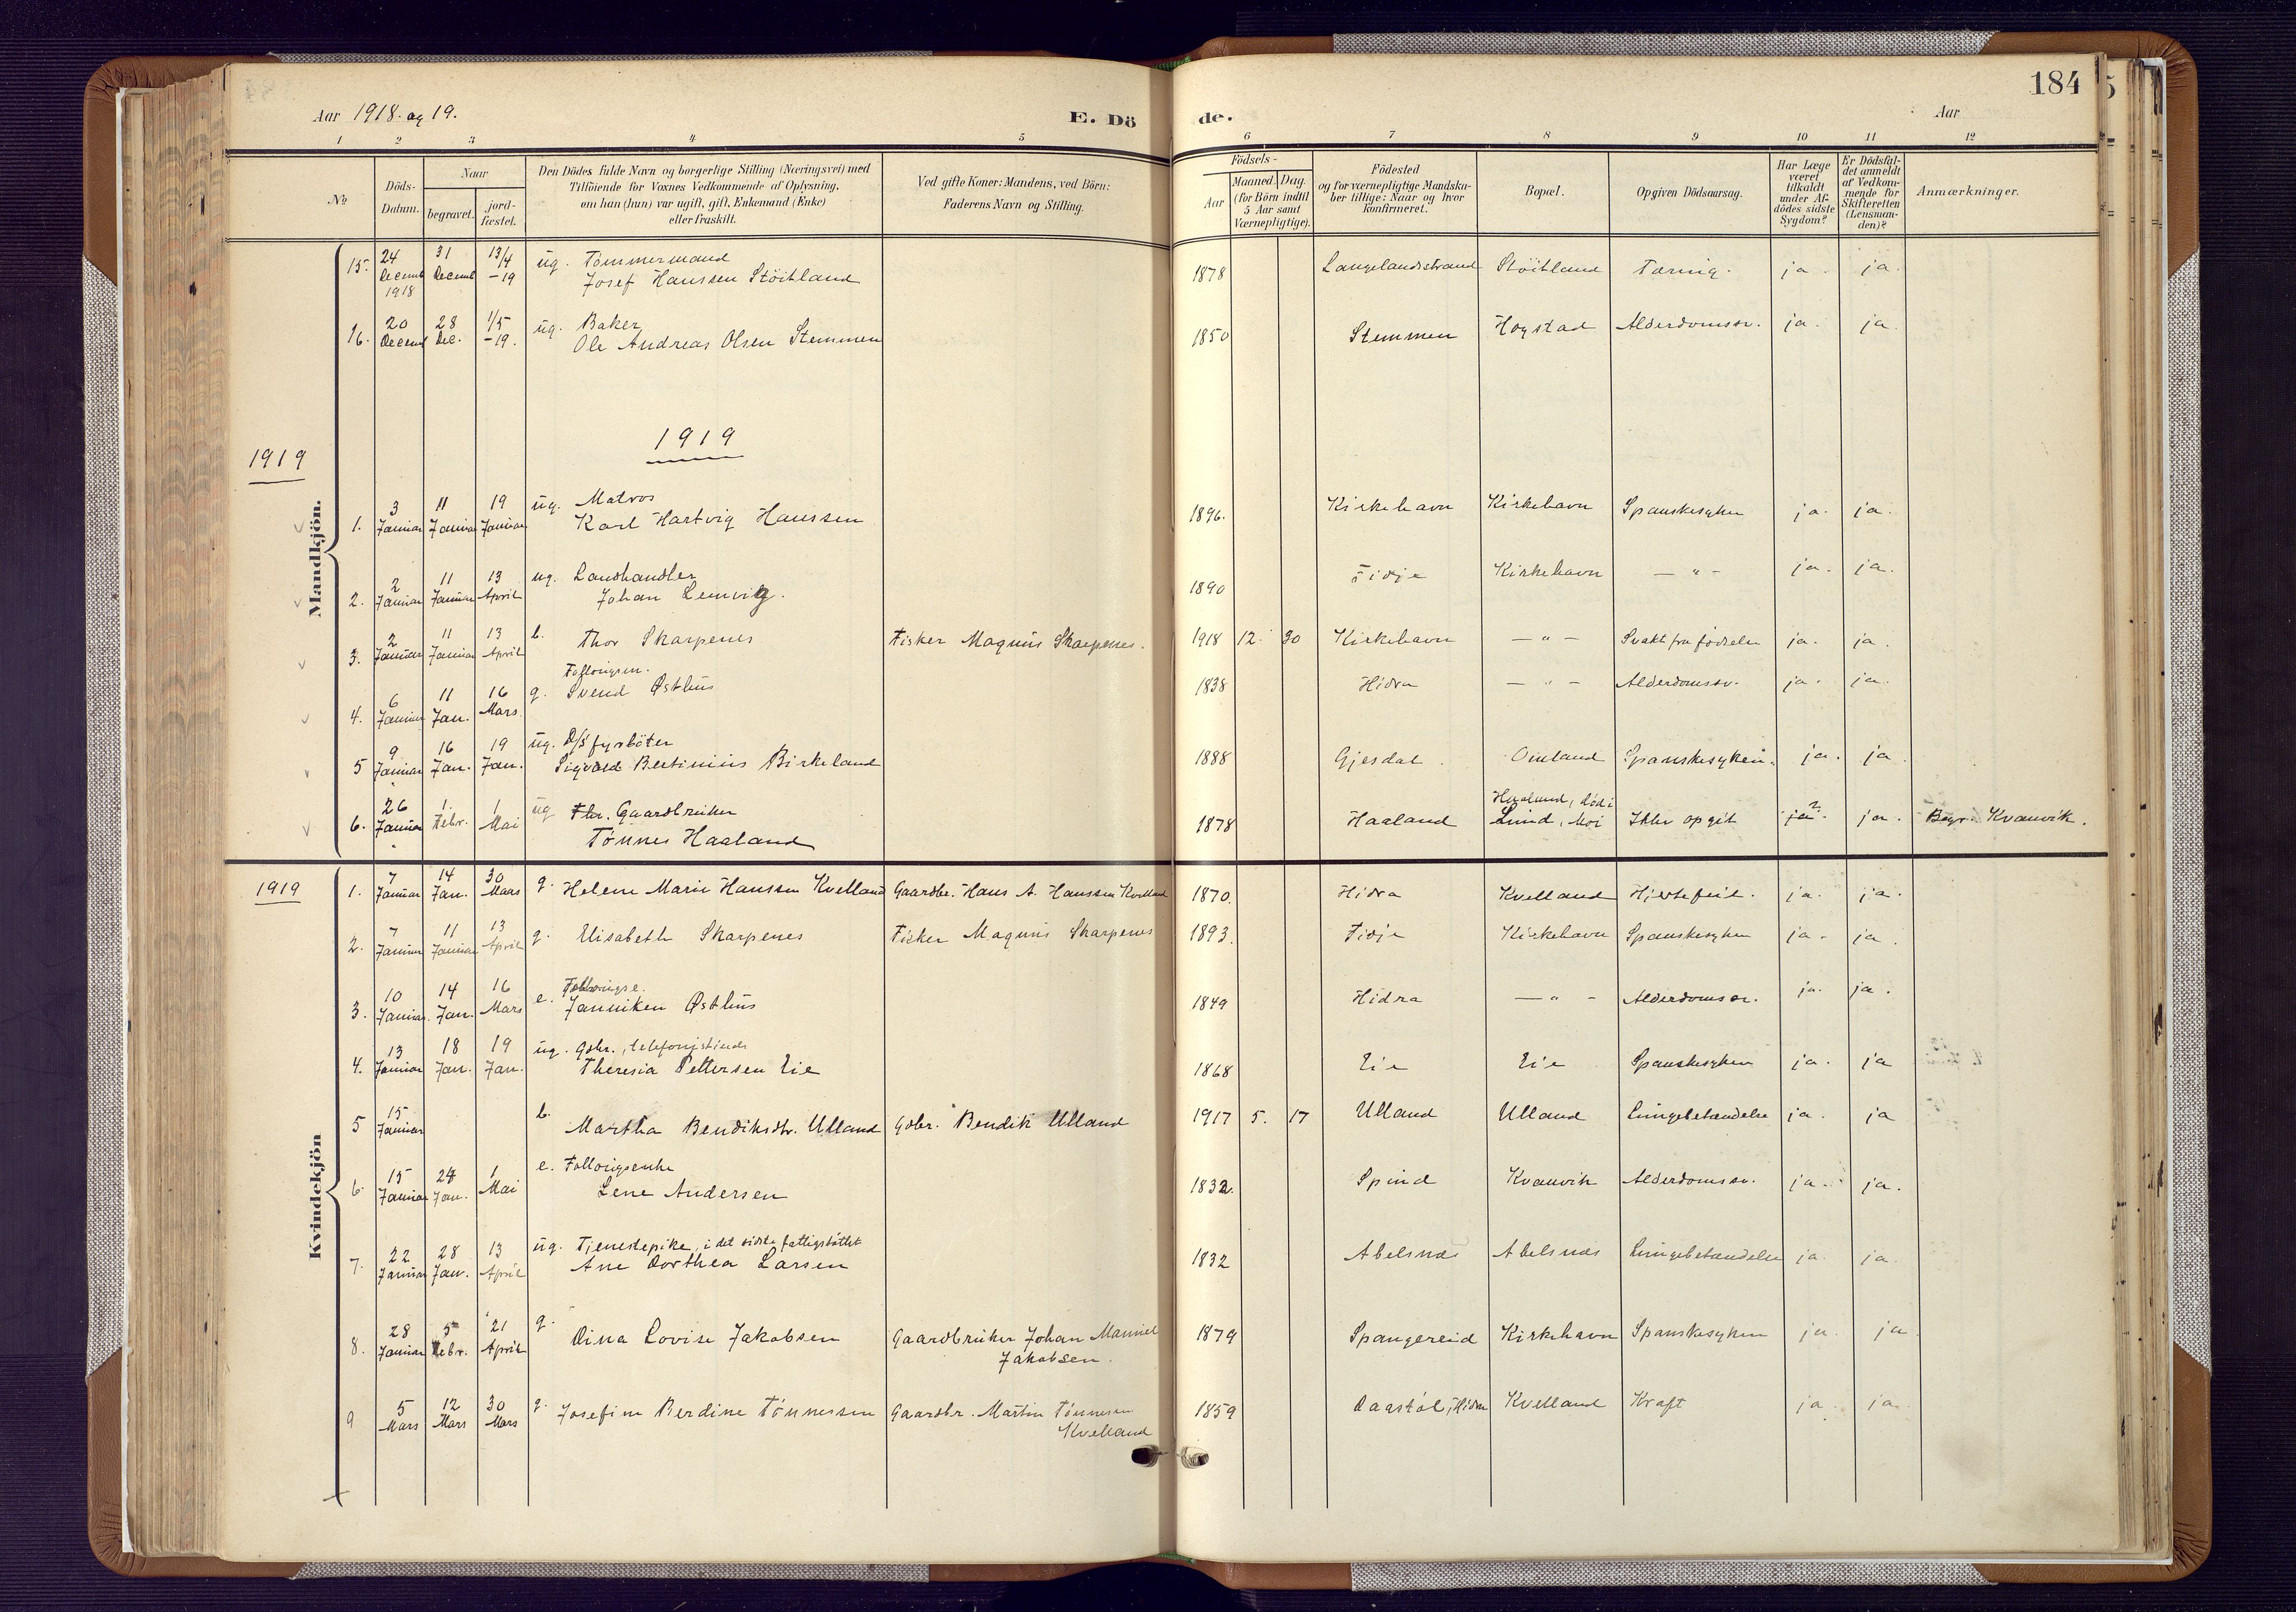 184
Aar 1918. og 19.
E. Dö de.
Aar
1 2 3 4 5 6 7 8 9 10 11 12
No
Döds-Datum.
Naar
begravet.
jord-fæstet.
Den Dödes fulde Navn og borgerlige Stilling (Næringsvei) med
Tilföiende for Voxnes Vedkommende af Oplysning,
om han (hun) var ugift, gift, Enkemand (Enke)
eller fraskilt.
Ved gifte Koner: Mandens, ved Börn:
Faderens Navn og Stilling.
Födsels-
Aar
Maaned.
Dag.
(for Börn indtil
5 Aar samt
Værnepligtige).
Födested
og for værnepligtige Mandska-
ber tillige: Naar og hvor
konfirmeret.
Bopæl.
Opgiven Dödsaarsag.
Har Læge
været
tilkaldt
under Af-
dödes sidste
Sygdom?
Er Dödsfal-
det anmeldt
af Vedkom-
mende for
Skifteretten
(Lensman-
den)?
Anmærkninger.
Mandkjön.
15. 24 Decemb 1918 31 Decemb 13/4 -19 ug. Tømmermand
Josef Hanssen Stöitland 1878 Langelandsstrand Stöitland Tæring. ja. ja.
16. 20 Decemb 28 Dec. 1/5 -19. ug. Baker
Ole Andreas Olsen Stemmen 1850 Stemmen Hogstad Alderdomssv. ja. ja
1919
1919
1. 3 Januar 11 Januar 19 Januar ug. Matros
Karl Hartvig Hanssen 1896. Kirkehavn Kirkehavn Spanskesyken ja. ja.
2. 2 Januar 11 Januar 13 April ug. Landhandler
Johan Lemvig. 1890 Fidje Kirkehavn — " – ja. ja.
3. 2 Januar 11 Januar 13 April b. Thor Skarpenes Fisker Magnus Skarpenes. 1918 12. 30 Kirkehavn — " – Svakt fra fødselen ja. ja.
4. 6 Januar 11 Jan. 16 Mars g. Føderaadsm.
Svend Østhus 1838 Hidra — " – Alderdomssv. ja. ja.
5 9 Januar 16 Jan. 19 Jan. ug. D/s fyrbøter
Sigvald Bertinius Birkeland 1888 Gjesdal. Omland Spanskesyken. ja. ja
6. 26 Januar 1. Febr. 1 Mai ug Fhv. Gaardbruker
Tønnes Haaland 1878 Haaland Haaland, död i
Lund, Moi Ikke opgit ja? ja. Begr. Kvanvik.
1919
Kvindekjön
1. 7 Januar 14 Jan. 30 Mars g. Helene Marie Hanssen Kvelland Gaardbr. Hans A. Hanssen Kvelland 1870. Hidra Kvelland Hjertefeil. ja. ja.
2. 7 Januar 11 Januar 13 April g. Elisabeth Skarpenes Fisker Magnus Skarpenes 1893. Fidje Kirkehavn Spanskesyken ja. ja.
3. 10 Januar. 14 Jan. 16 Mars e.
Janniken Østhus 1849 Hidra — " – Alderdomssv. ja. ja.
4. 13 Januar 18 Jan. 19 Jan. ug. Gdbr., telefonistinde
Theresia Pettersen Eie 1868 Eie Eie Spanskesyken ja. ja
5 15 Januar b. Martha Bendiksdtr. Ulland Gdbr. Bendik Ulland 1917 5. 17 Ulland Ulland Lungebetændelse ja. ja
6 15 Januar 24 Jan. 1 Mai e.
Lene Andersen 1832. Spind Kvanvik Alderdomssv. ja. ja.
7. 22 Januar 28 Jan. 13 April ug. Tjenestepike, i det sidste fattigstöttet
Ane Dorthea Larsen 1832 Abelsnæs Abelsnæs Lungebetændelse ja. ja.
8. 28 Januar 5 Febr. 21 April g. Dina Lovise Jakobsen Gaardbruker Johan Manuel
Jakobsen. 1879 Spangereid Kirkehavn Spanskesyken ja. ja
9 5 Mars 12 Mars 30 Mars g. Josefine Berdine Tönnessen Gaardbr. Martin Tönnesen
Kvelland 1859 Daastöl, Hidra Kvelland Kræft ja. ja.